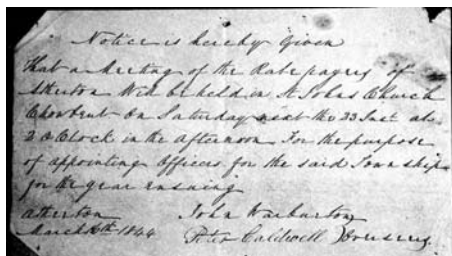 Notice is hereby Given
That a Meeting of the Rate payers of
Atherton Will be held in St Johns Church
Chowbent On Saturday next the 23 Inst at
2 o Clock in the afternoon For the purpose
of appointing Officers for the said Township
for the year ensuing
Atherton John Warburton
March 16th 1844 Peter Caldwell